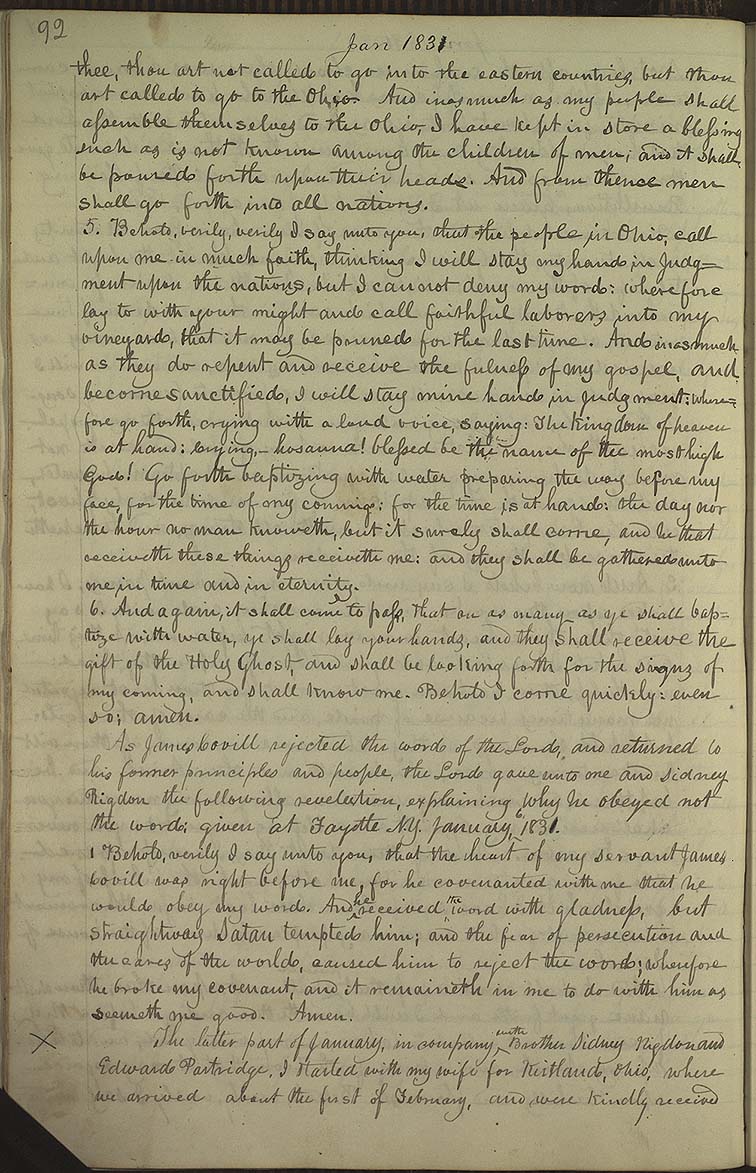 92
Jan 1831
thee, thou art not called to go into the eastern countries, but thou
art called to go to the Ohio. And inasmuch as my people shall
assemble themselves to the Ohio, I have kept in store a blessing
such as is not known among the children of men; and it shall
be poured forth upon their heads. And from thence men
shall go forth into all nations.
5. Behold, verily, verily I say unto you, that the people in Ohio, call
upon me in much faith, thinking I will stay my hand in Judg=
ment upon the nations, but I cannot deny my word: wherefore
lay to with your might and call faithful laborers into my
vineyard, that it may be pruned for the last time. And inasmuch
as they do repent and receive the fulness of my gospel, and
become sanctified, I will stay mine hand in judgment: where=
fore go forth, crying with a loud voice, saying: The Kingdom of heaven
is at hand: crying,- hosanna! blessed be the name of the most high
God! Go forth baptizing with water preparing the way before my
face, for the time of my coming; for the time is at hand: the day nor
the hour no man knoweth, but it surely shall come, and he that
receiveth these things receiveth me: and they shall be gathered unto
me in time and in eternity.
6. And again, it shall come to pass, that on as many as ye shall bap=
tize with water, ye shall lay your hands, and they shall receive the
gift of the Holy Ghost, and shall be looking forth for the signs of
my coming, and shall know me. Behold I come quickly: even
so; amen.
As James Covill rejected the word of the Lord, and returned to
his former principles and people, the Lord gave unto me and Sidney
Rigdon the following revelection, explaining why he obeyed not
the word; given at Fayette N.Y. January, 1831.
1 Behold, verily I say unto you, that the heart of my servant James
Covill was right before me, for he covenanted with me that he
would obey my word. And he received the word with gladness, but
straightway Satan tempted him; and the fear of persecution and
the cares of the world, caused him to reject the word; wherefore
he broke my covenant, and it remaineth in me to do with him as
seemeth me good. Amen.
X The latter part of January, in company with Brother Sidney Rigdon and
Edward Partridge, I started with my wife for Kirtland, Ohio, where
we arrived about the first of February, and were kindly received